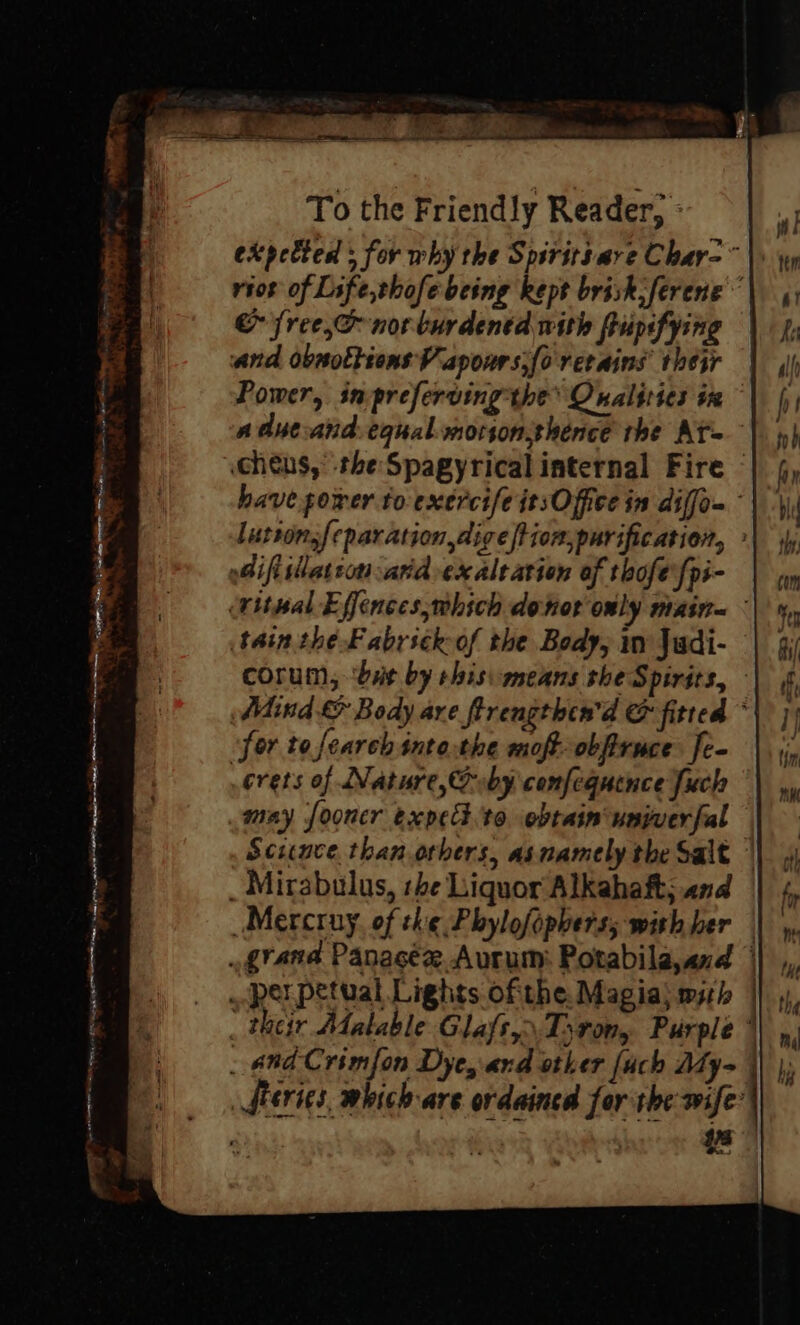 To the Friendly Reader,
expected ; for why the Spirits are Char-
riot of Life, those being kept brisk, serene
& free, & not burdened with stupifying
and obnoctions Vapours, so retains their
Power, in preserving the Qualities in
a due and equal motion, thence the Ar-
cheus, the Spagyrical internal Fire
have power to exercise its Office in disso-
lution, separation, digestion, purification,
distillation and exaltation of those spi-
ritual Essences, which do not only main-
tain the Fabrick of the Body, in Judi-
corum, but by this means the Spirits,
Mind & Body are strengthen'd & fitted
for to search into the most obstruce se-
crets of Nature, & by consequence such
may sooner expect to obtain universal
Science than others, as namely the Salt
Mirabulus, the Liquor Alkahast; and
Mercruy of the Phylosophers, with her
grand Panaceæ Aurum Potabila, and
perpetual Lights of the Magia, with
their Malable Glass, Tyron, Purple
and Crimson Dye, and other such My-
steries which are ordained for the wise